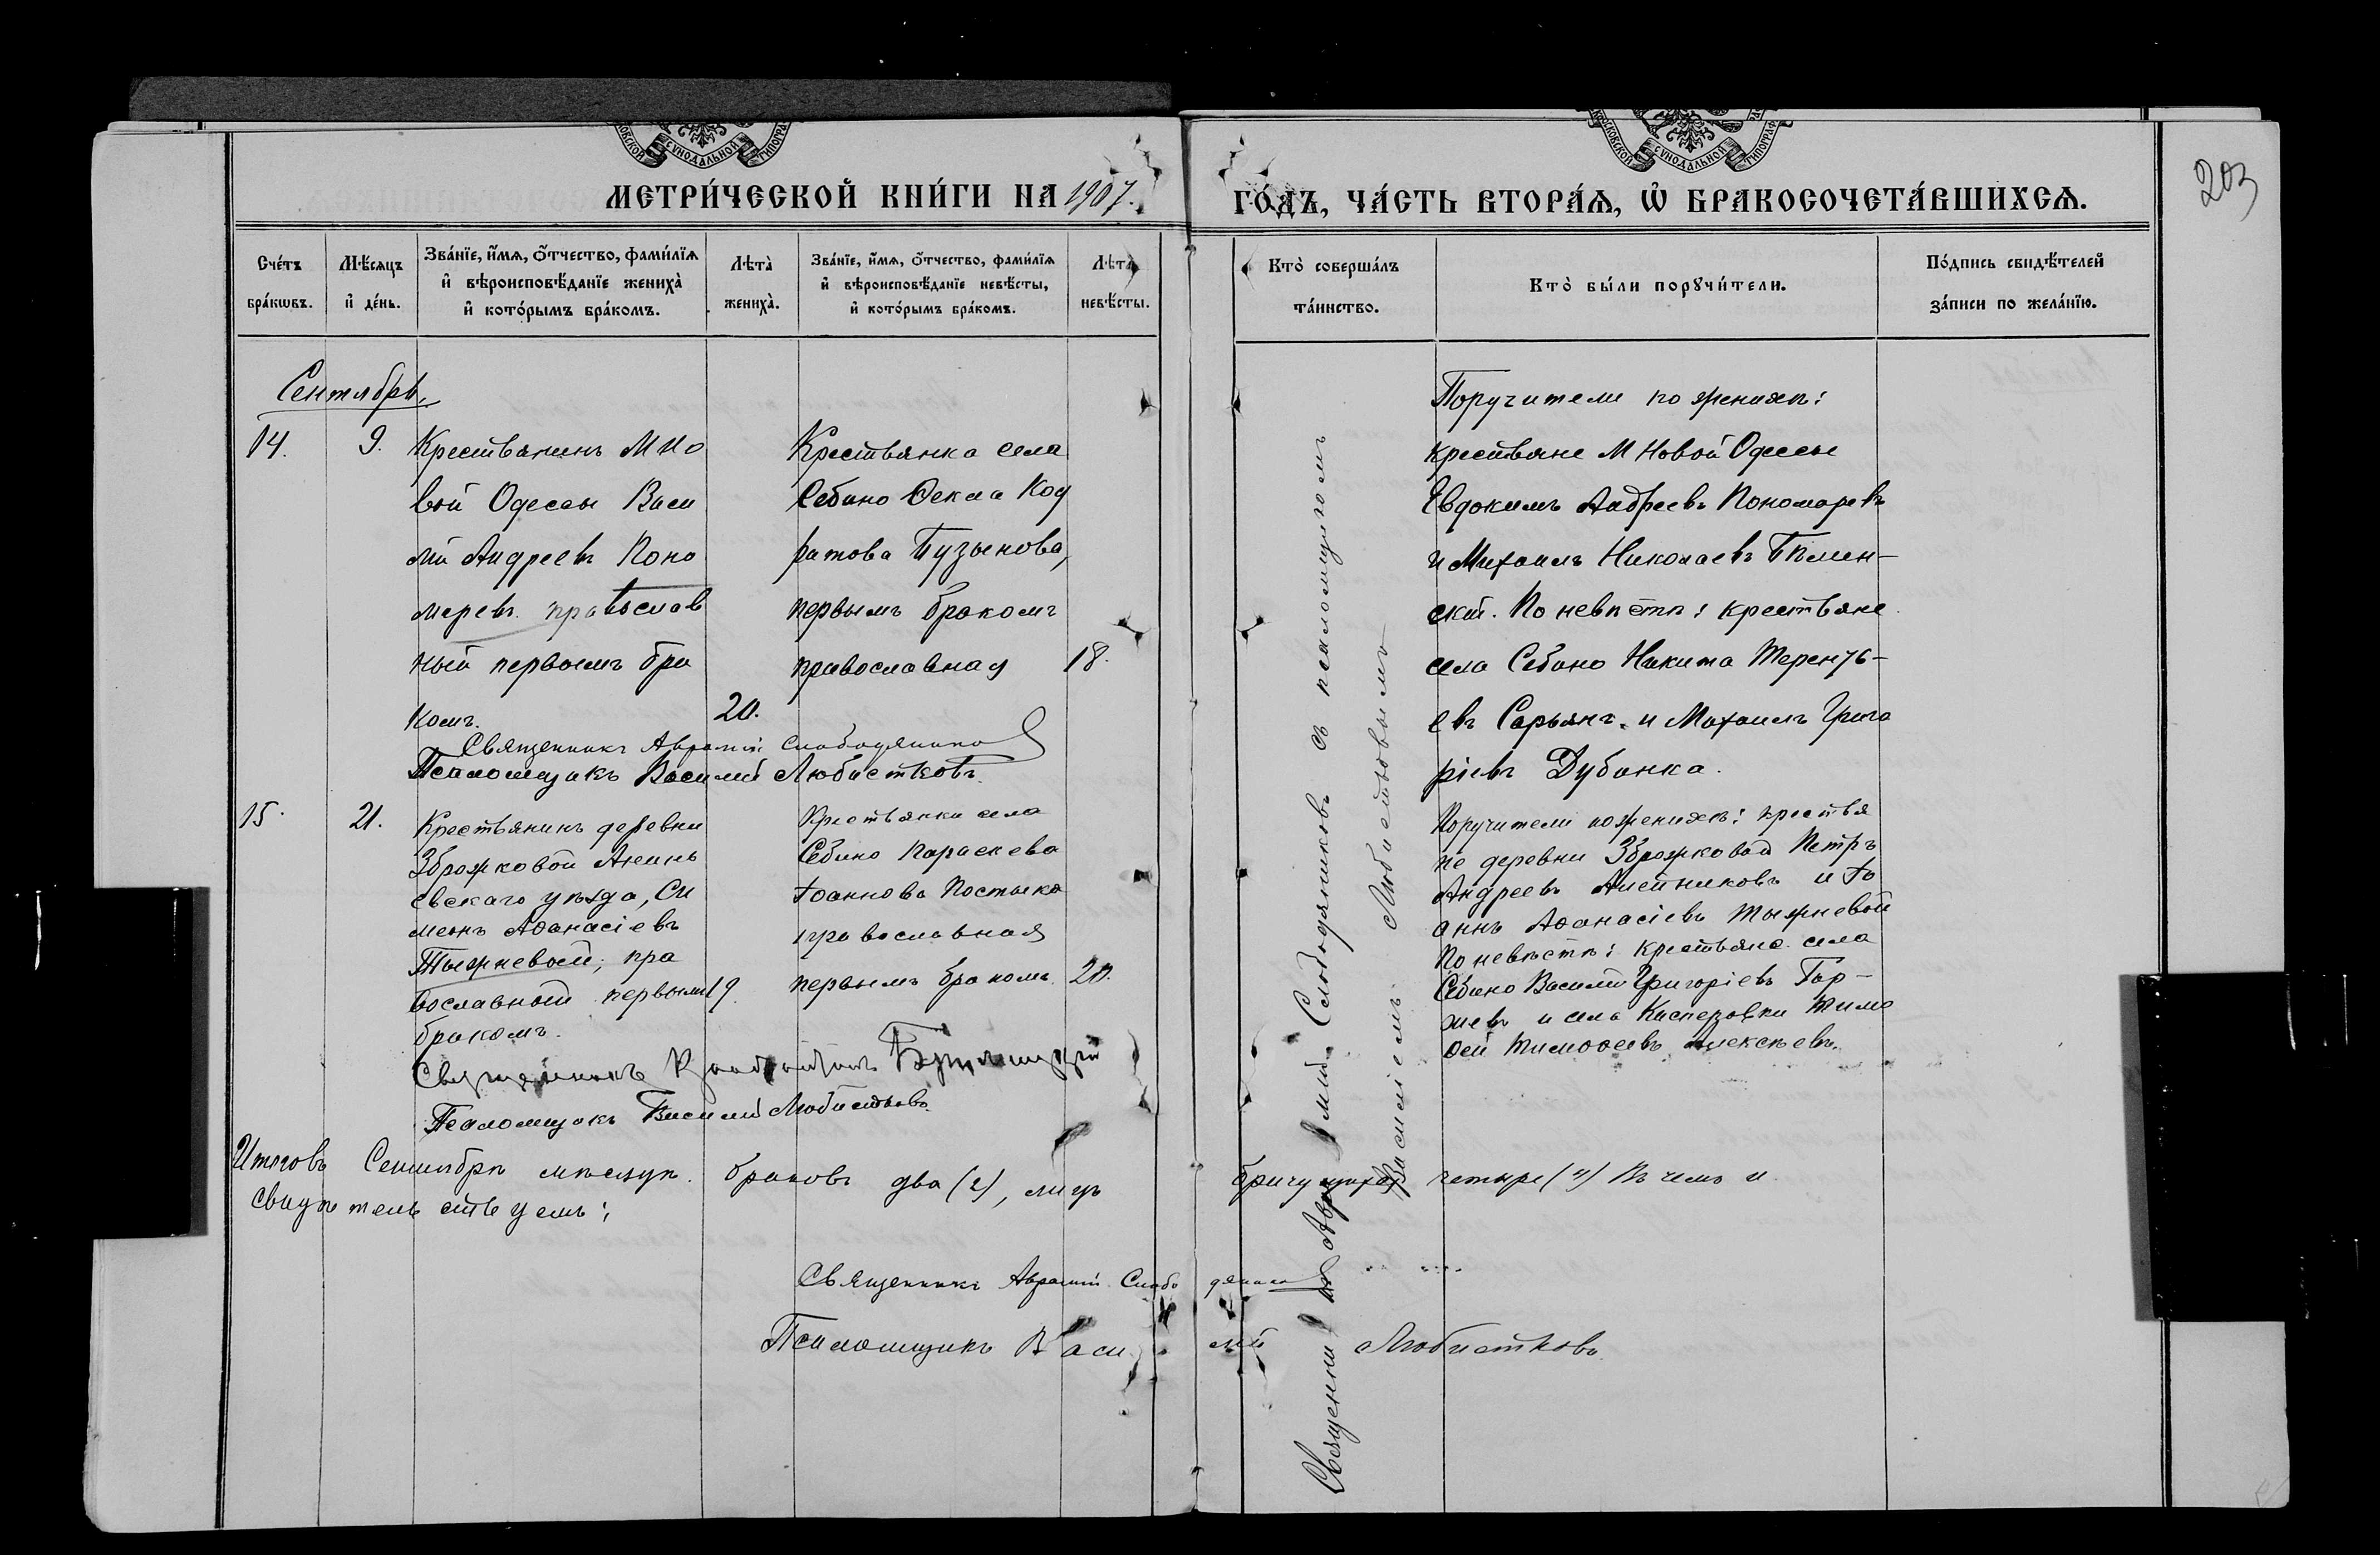 МОСКОВСКОЙ СѴНОДАЛЬНОЙ ТИПОГРАФ
МОСКОВСКОЙ СѴНОДАЛЬНОЙ ТИПОГРАФ
МЕТРИ́ЧЕСКОЙ КНИ́ГИ НА 1907.
ГО́ДЪ, ЧА́СТЬ ВТОРА́Ѧ, Ѡ҆ БРАКОСОЧЕТА́ВШИХСѦ.
203
Сче́тъ бра́кѡвъ.
Мѣ́сяцъ и҆ де́нь.
Зва́нїе, и҆́мѧ, ѻ҆́тчество, фами́лїѧ и҆ вѣроисповѣ́данїе жениха̀ и҆ кото́рымъ бра́комъ.
Лѣта̀ жениха̀.
Зва́нїе, и҆́мѧ, ѻ҆́тчество, фами́лїѧ и҆ вѣроисповѣ́данїе невѣ́сты, и҆ кото́рымъ бра́комъ.
Лѣта̀ невѣ́сты.
Кто̀ соверша́лъ та́инство.
Кто̀ бы́ли порꙋчи́тели.
По́дпись свидѣ́телей за́писи по жела́нїю.
Сентябрь
14.
9.
Крестьянинъ М Но
вой Одессы Васи
лій Андреевъ Поно
маревъ православ
ный первымъ бра
комъ.
20.
Крестьянка села
Себино Ѳекла Код
ратова Пузынова,
первымъ бракомъ
православная
18.
Поручители по женихѣ:
крестьяне М Новой Одессы
Евдокимъ Андреевъ Пономаревъ
и Михаилъ Николаевъ
ский. По невѣстѣ: крестьяне
села Себино Никита Терентъ-
евъ Сарьянъ и Михаилъ Григо
ріевъ Дубинка.
Священникъ Аврамій Слободяников
Псаломщикъ Василій Любистковъ.
15.
21.
Крестьянинъ деревни
Зброжковой Анань
евскаго уѣзда, Си
меонъ Аѳанасіевъ
Тыжневой, пра
вославный первымъ
бракомъ.
19.
Крестьянка села
Себино Параскева
Іоаннова Постыка
православная
первымъ бракомъ
20.
Поручители по женихѣ: крестья
не деревни Зброжковой Петръ
Андреевъ Алейниковъ и Іо
аннъ Аѳанасіевъ Тыжневой
По невѣстѣ: крестьяне села
Себино Василій Григоріевъ Гор-
жіевъ и села Касперовки Тимо
ѳей Тимоѳеевъ Алексѣевъ.
Священникъ
Псаломщикъ Василій Любистковъ.
Священникъ Аврамій Слободяниковъ съ псаломщикомъ
Василіемъ Любистковымъ
Итоговъ Сентябрѣ мѣсяцѣ браковъ два (2), лицъ
четыре (4) Въ чемъ и
свидѣтельствуемъ:
Священникъ Аврамій Слободяников
Псаломщикъ Василій Любистковъ